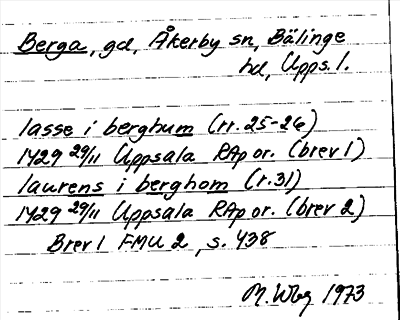 Berga, gd, Åkerby sn, Bälinge
hd, Upps. l.
lasse i berghum (rr. 25-26)
1429 29/11 Uppsala RAp or. (brev 1)
laurens i berghom (r. 31)
1429 29/11 Uppsala RAp or. (brev 2)
Brev 1 FMU 2, s. 438
M. Wbg 1973